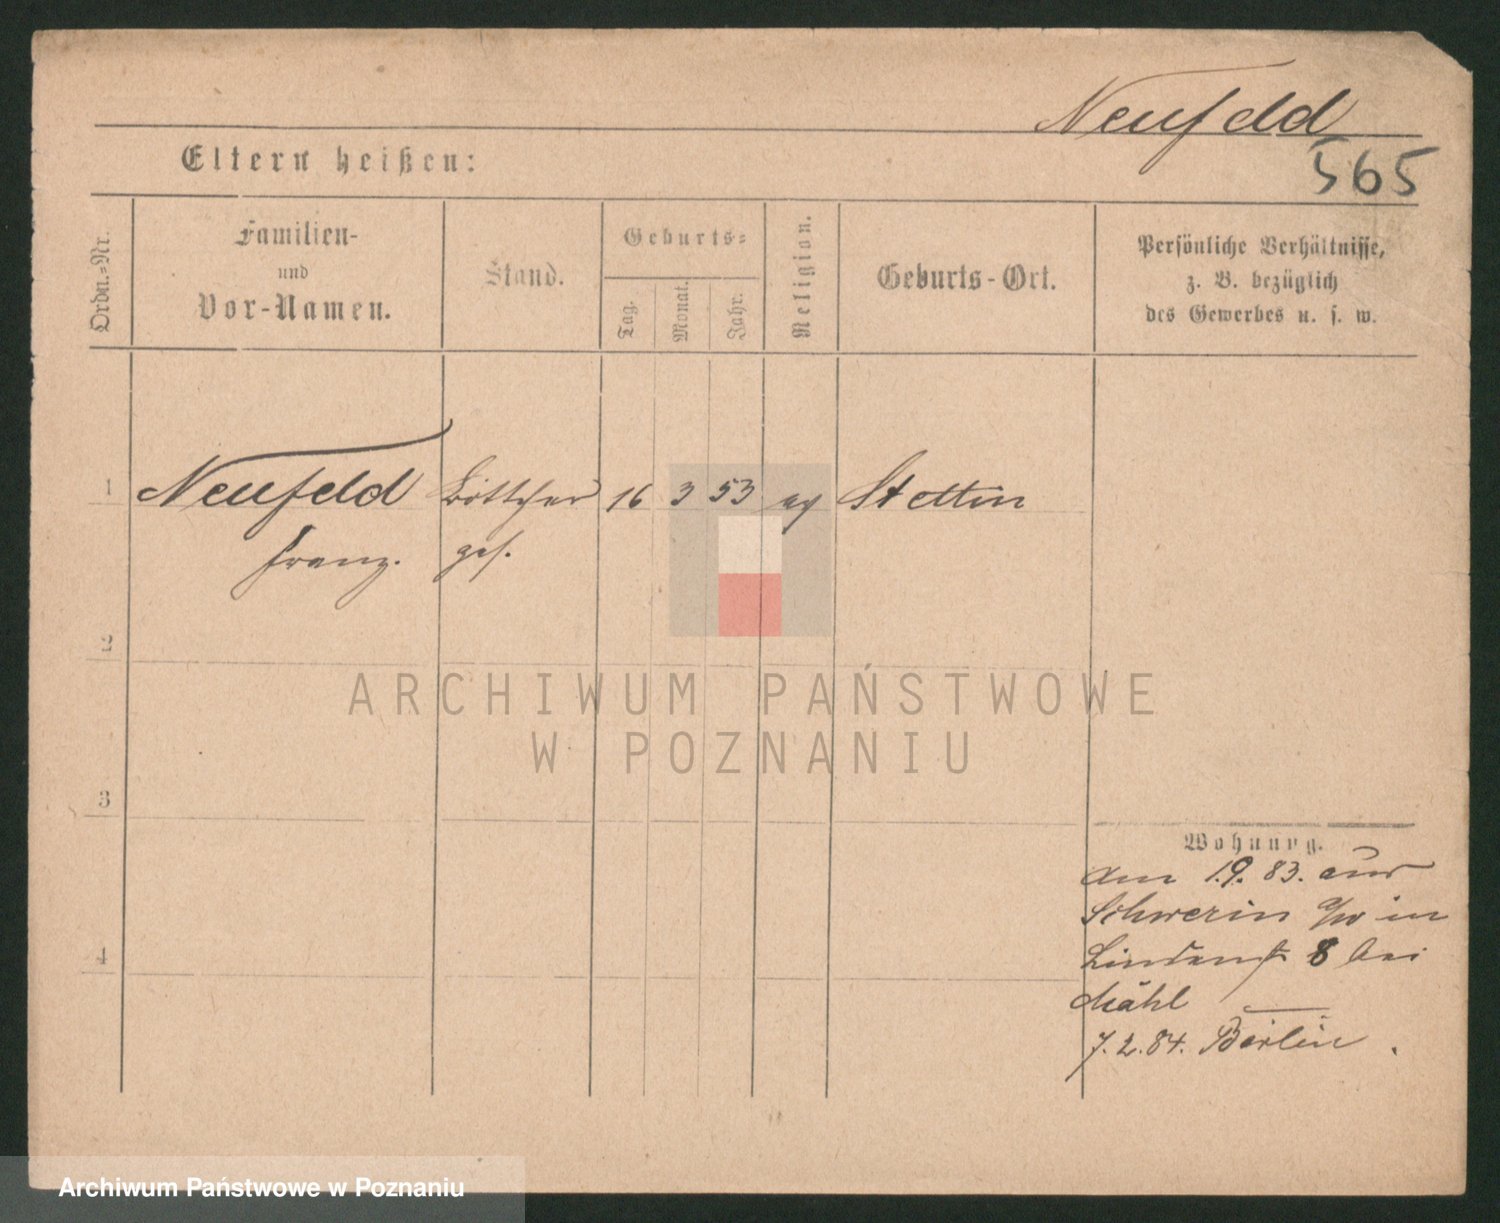 Neufeld
565
Eltern heißen:
Ordn.=Nr.
Familien-
und
Vor-Namen.
Stand.
Geburts=
Tag.
Monat.
Jahr.
Religion.
Geburts-Ort.
Persönliche Verhältnisse,
z. B. bezüglich
des Gewerbes u. s. w.
1 Neufeld Böttcher 16 3 53 ev Stettin
Franz. ges.
2
3
4
Wohnung.
am 1.9.83. aus
Schwerin a/w in
Lindenst 8 bei
Mähl
7.2.84. Berlin.
ARCHIWUM PAŃSTWOWE
W POZNANIU
Archiwum Państwowe w Poznaniu